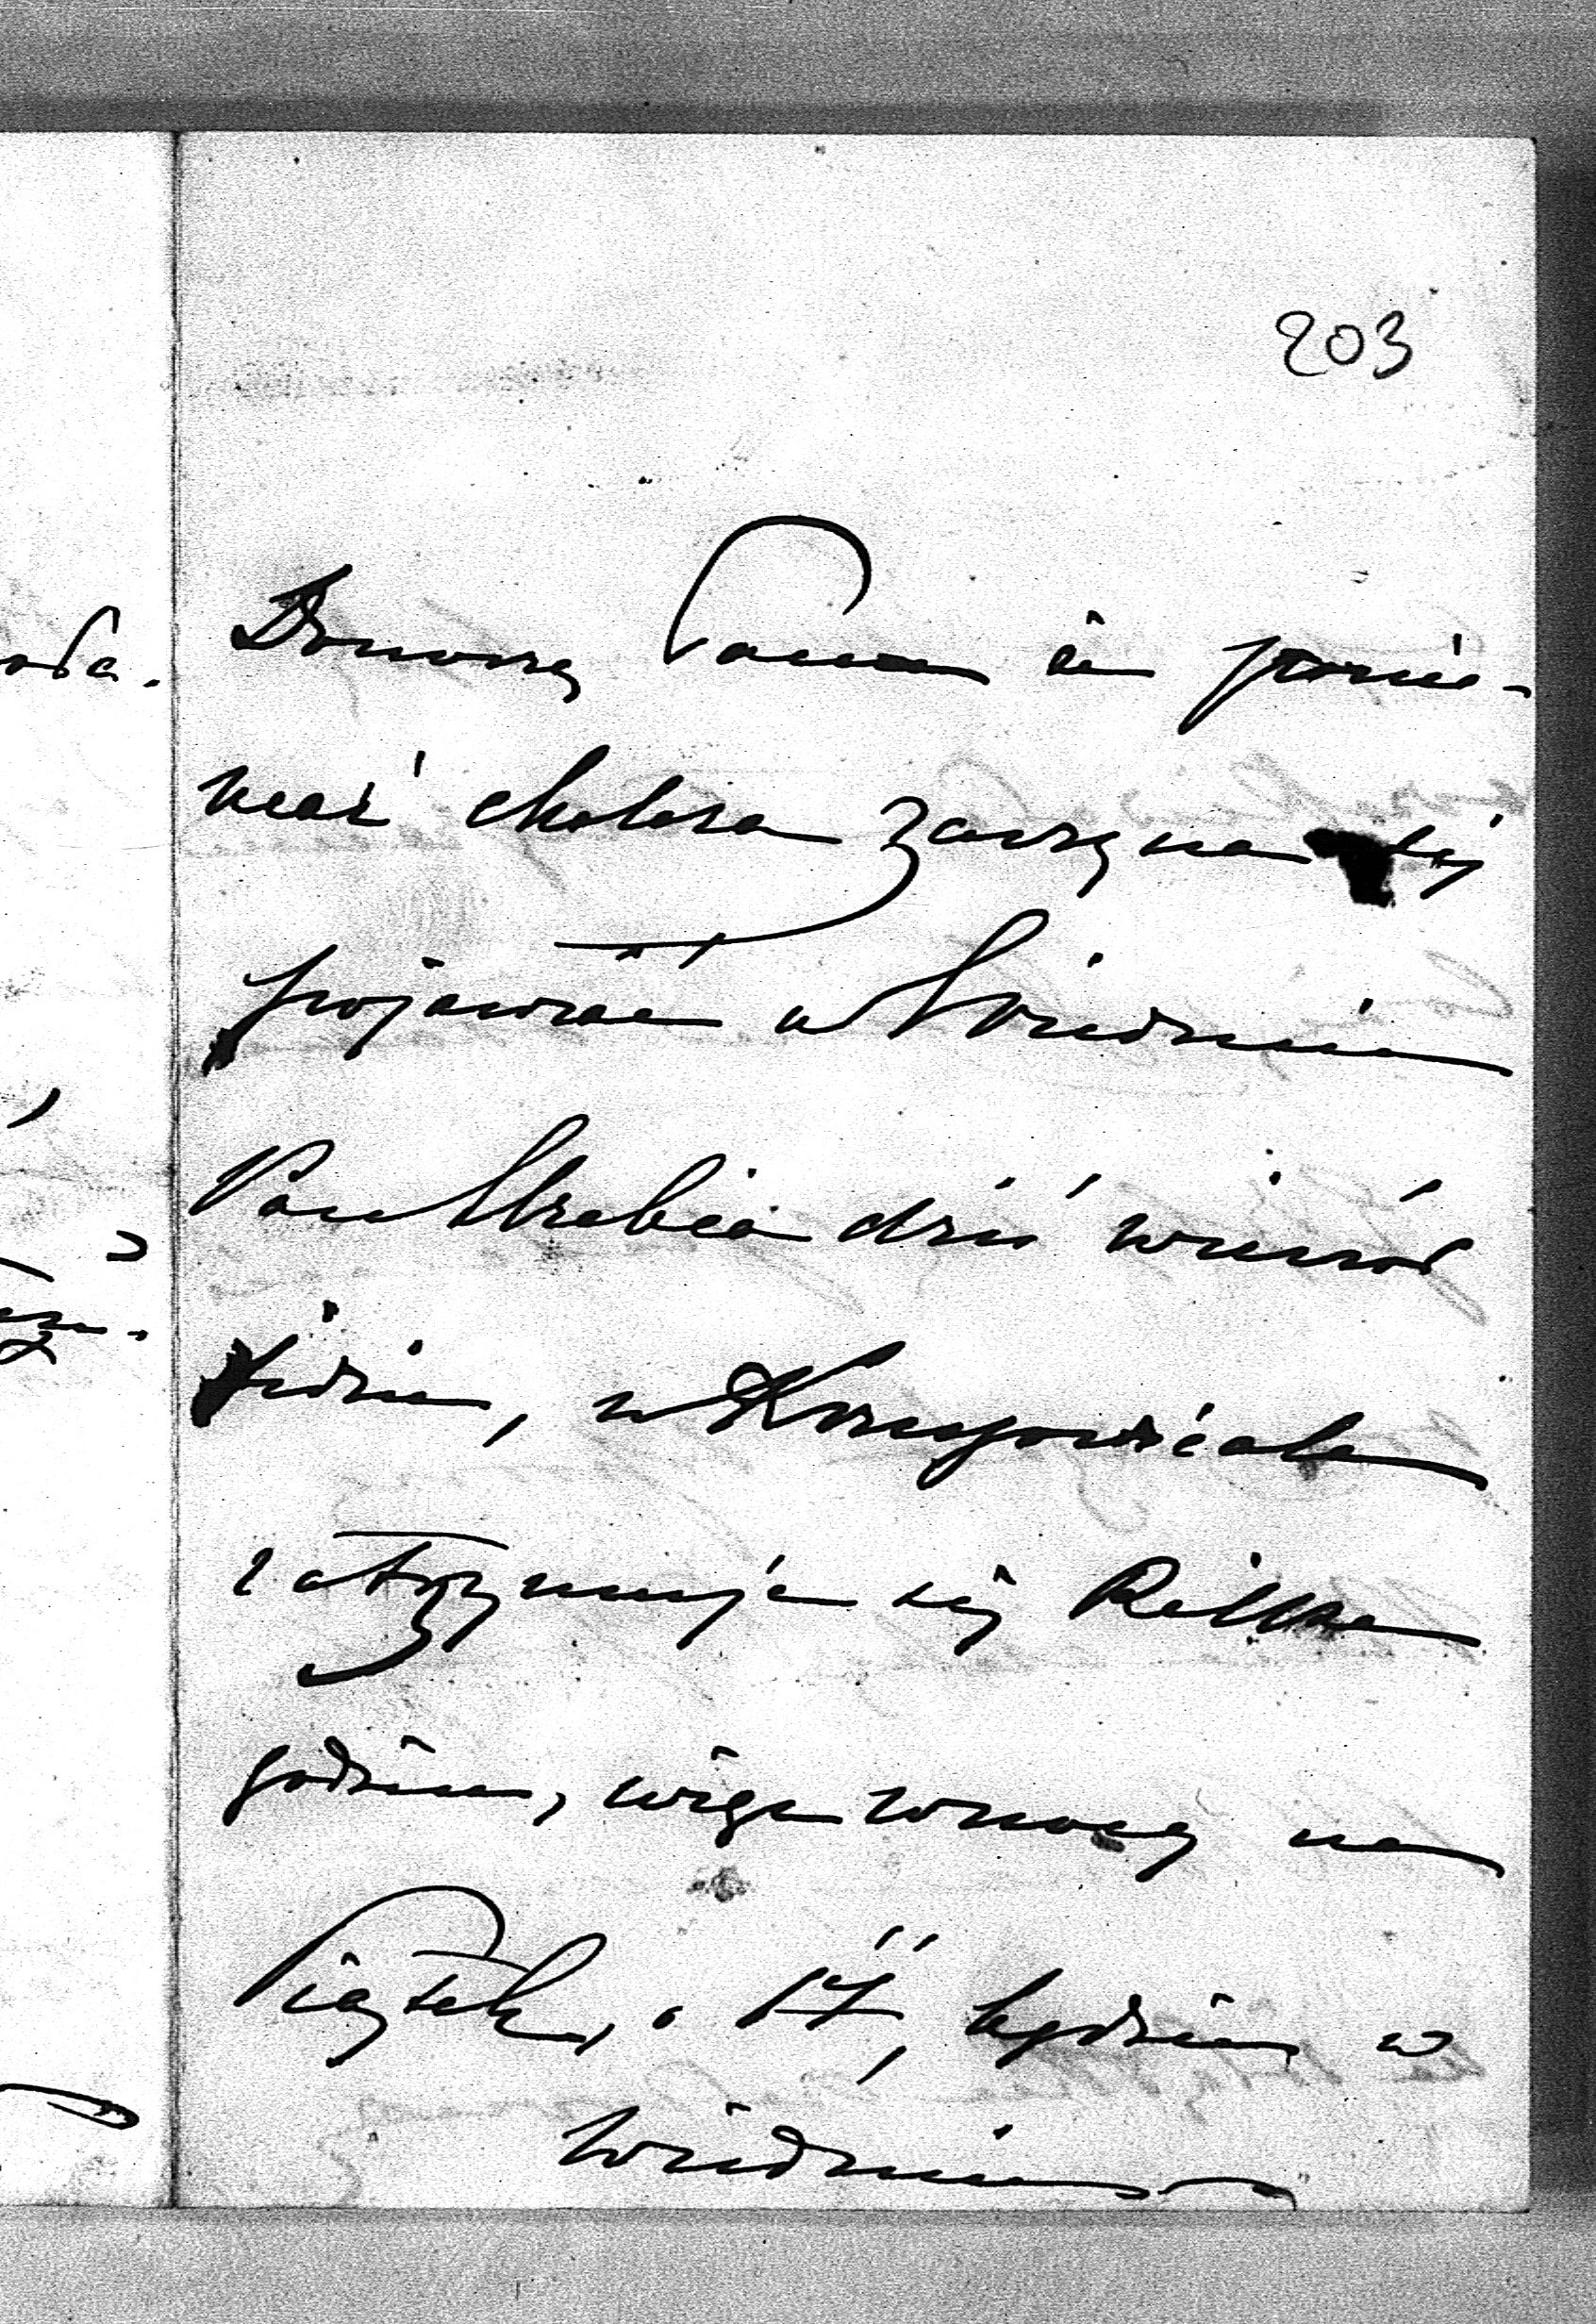 203
Donoszę Panu że ponie-
waż cholera zaczyna się
pojawiać w Wiedniu
Pan Hrabia dziś wieczór
jedzie, w
zatrzymuje się kilka
godzin, więc w nocy na
Piątek, o 17, będzie w
Wiedniu